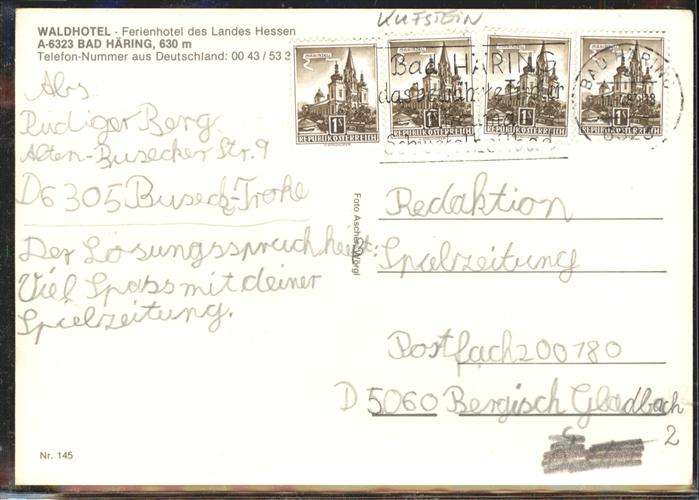 KUFSTEIN
WALDHOTEL - Ferienhotel des Landes Hessen
A-6323 BAD HÄRING, 630 m
Telefon-Nummer aus Deutschland: 00 43 / 53 3
1S
REPUBLIK ÖSTERREICH
1S
REPUBLIK ÖSTERREICH
1S
REPUBLIK ÖSTERREICH
1S
REPUBLIK ÖSTERREICH
Bad HÄRING
BAD HÄRING
6323
Abs
Rüdiger Berg
Alten-Busecker Str. 9
D6305 Buseck-Trohe
Der Lösungsspruch heißt:
Viel Spass mit deiner
Spielzeitung.
Foto Ascher, Wörgl
Redaktion
Spielzeitung
Postfach 200180
D 5060 Bergisch Gladbach
2
Nr. 145